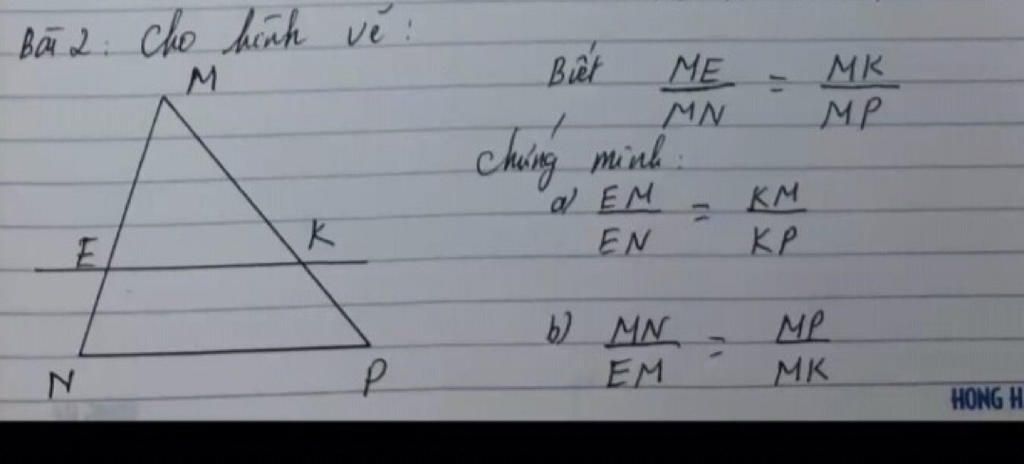 Bài 2: Cho hình vẽ:
M
E
K
N
P
Biết ME/MN = MK/MP
Chứng minh:
a) EM/EN = KM/KP
b) MN/EM = MP/MK
HONG H